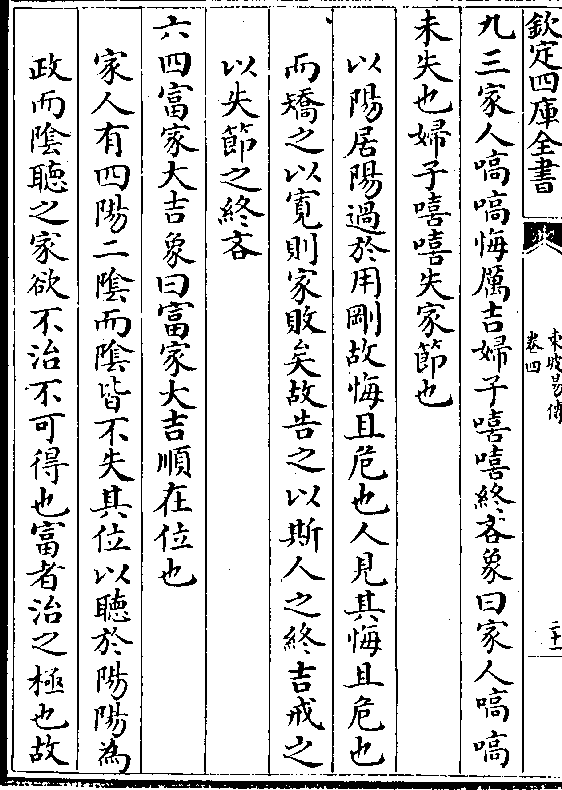 欽定四庫全書
東坡易傳
卷四
二十一
九三家人嗃嗃悔厲吉婦子嘻嘻終吝象曰家人嗃嗃
未失也婦子嘻嘻失家節也
以陽居陽過於用剛故悔且危也人見其悔且危也
而矯之以寛則家敗矣故告之以斯人之終吉戒之
以失節之終吝
六四富家大吉象曰富家大吉順在位也
家人有四陽二陰而陰皆不失其位以聽於陽陽為
政而陰聽之家欲不治不可得也富者治之極也故